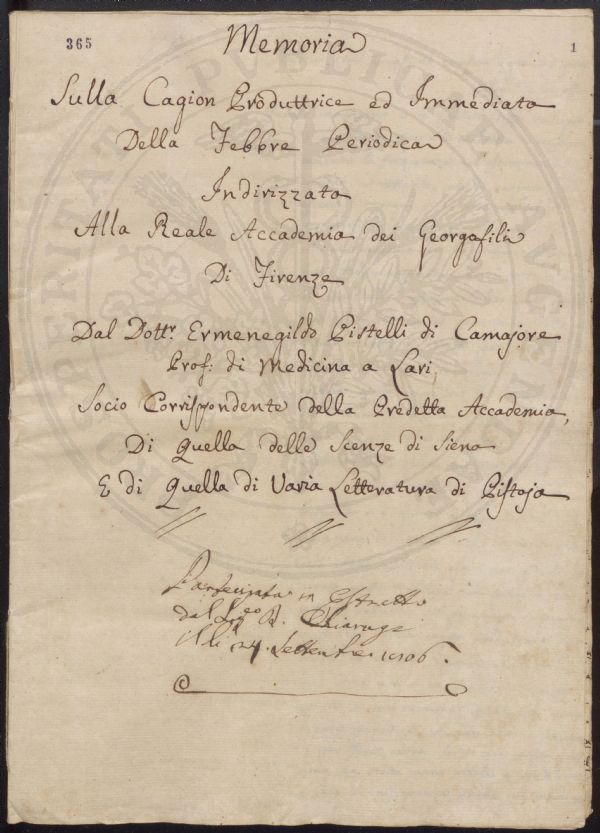 365
1
Memoria
Sulla Cagion Produttrice ed Immediata
Della Febbre Periodica
Indirizzata
Alla Reale Accademia dei Georgofili
Di Firenze
Dal Dottr. Ermenegildo Pistelli di Camajore
Prof: di Medicina a Lari,
Socio Corrispondente della Predetta Accademia,
Di Quella delle Scenze di Siena
E di Quella di Varia Letteratura di Pistoja
Partecipata in Estratto
dal Chiarugi
24. Settembre 1806.
PROSPERITATI PUBLICAE AUGENDAE